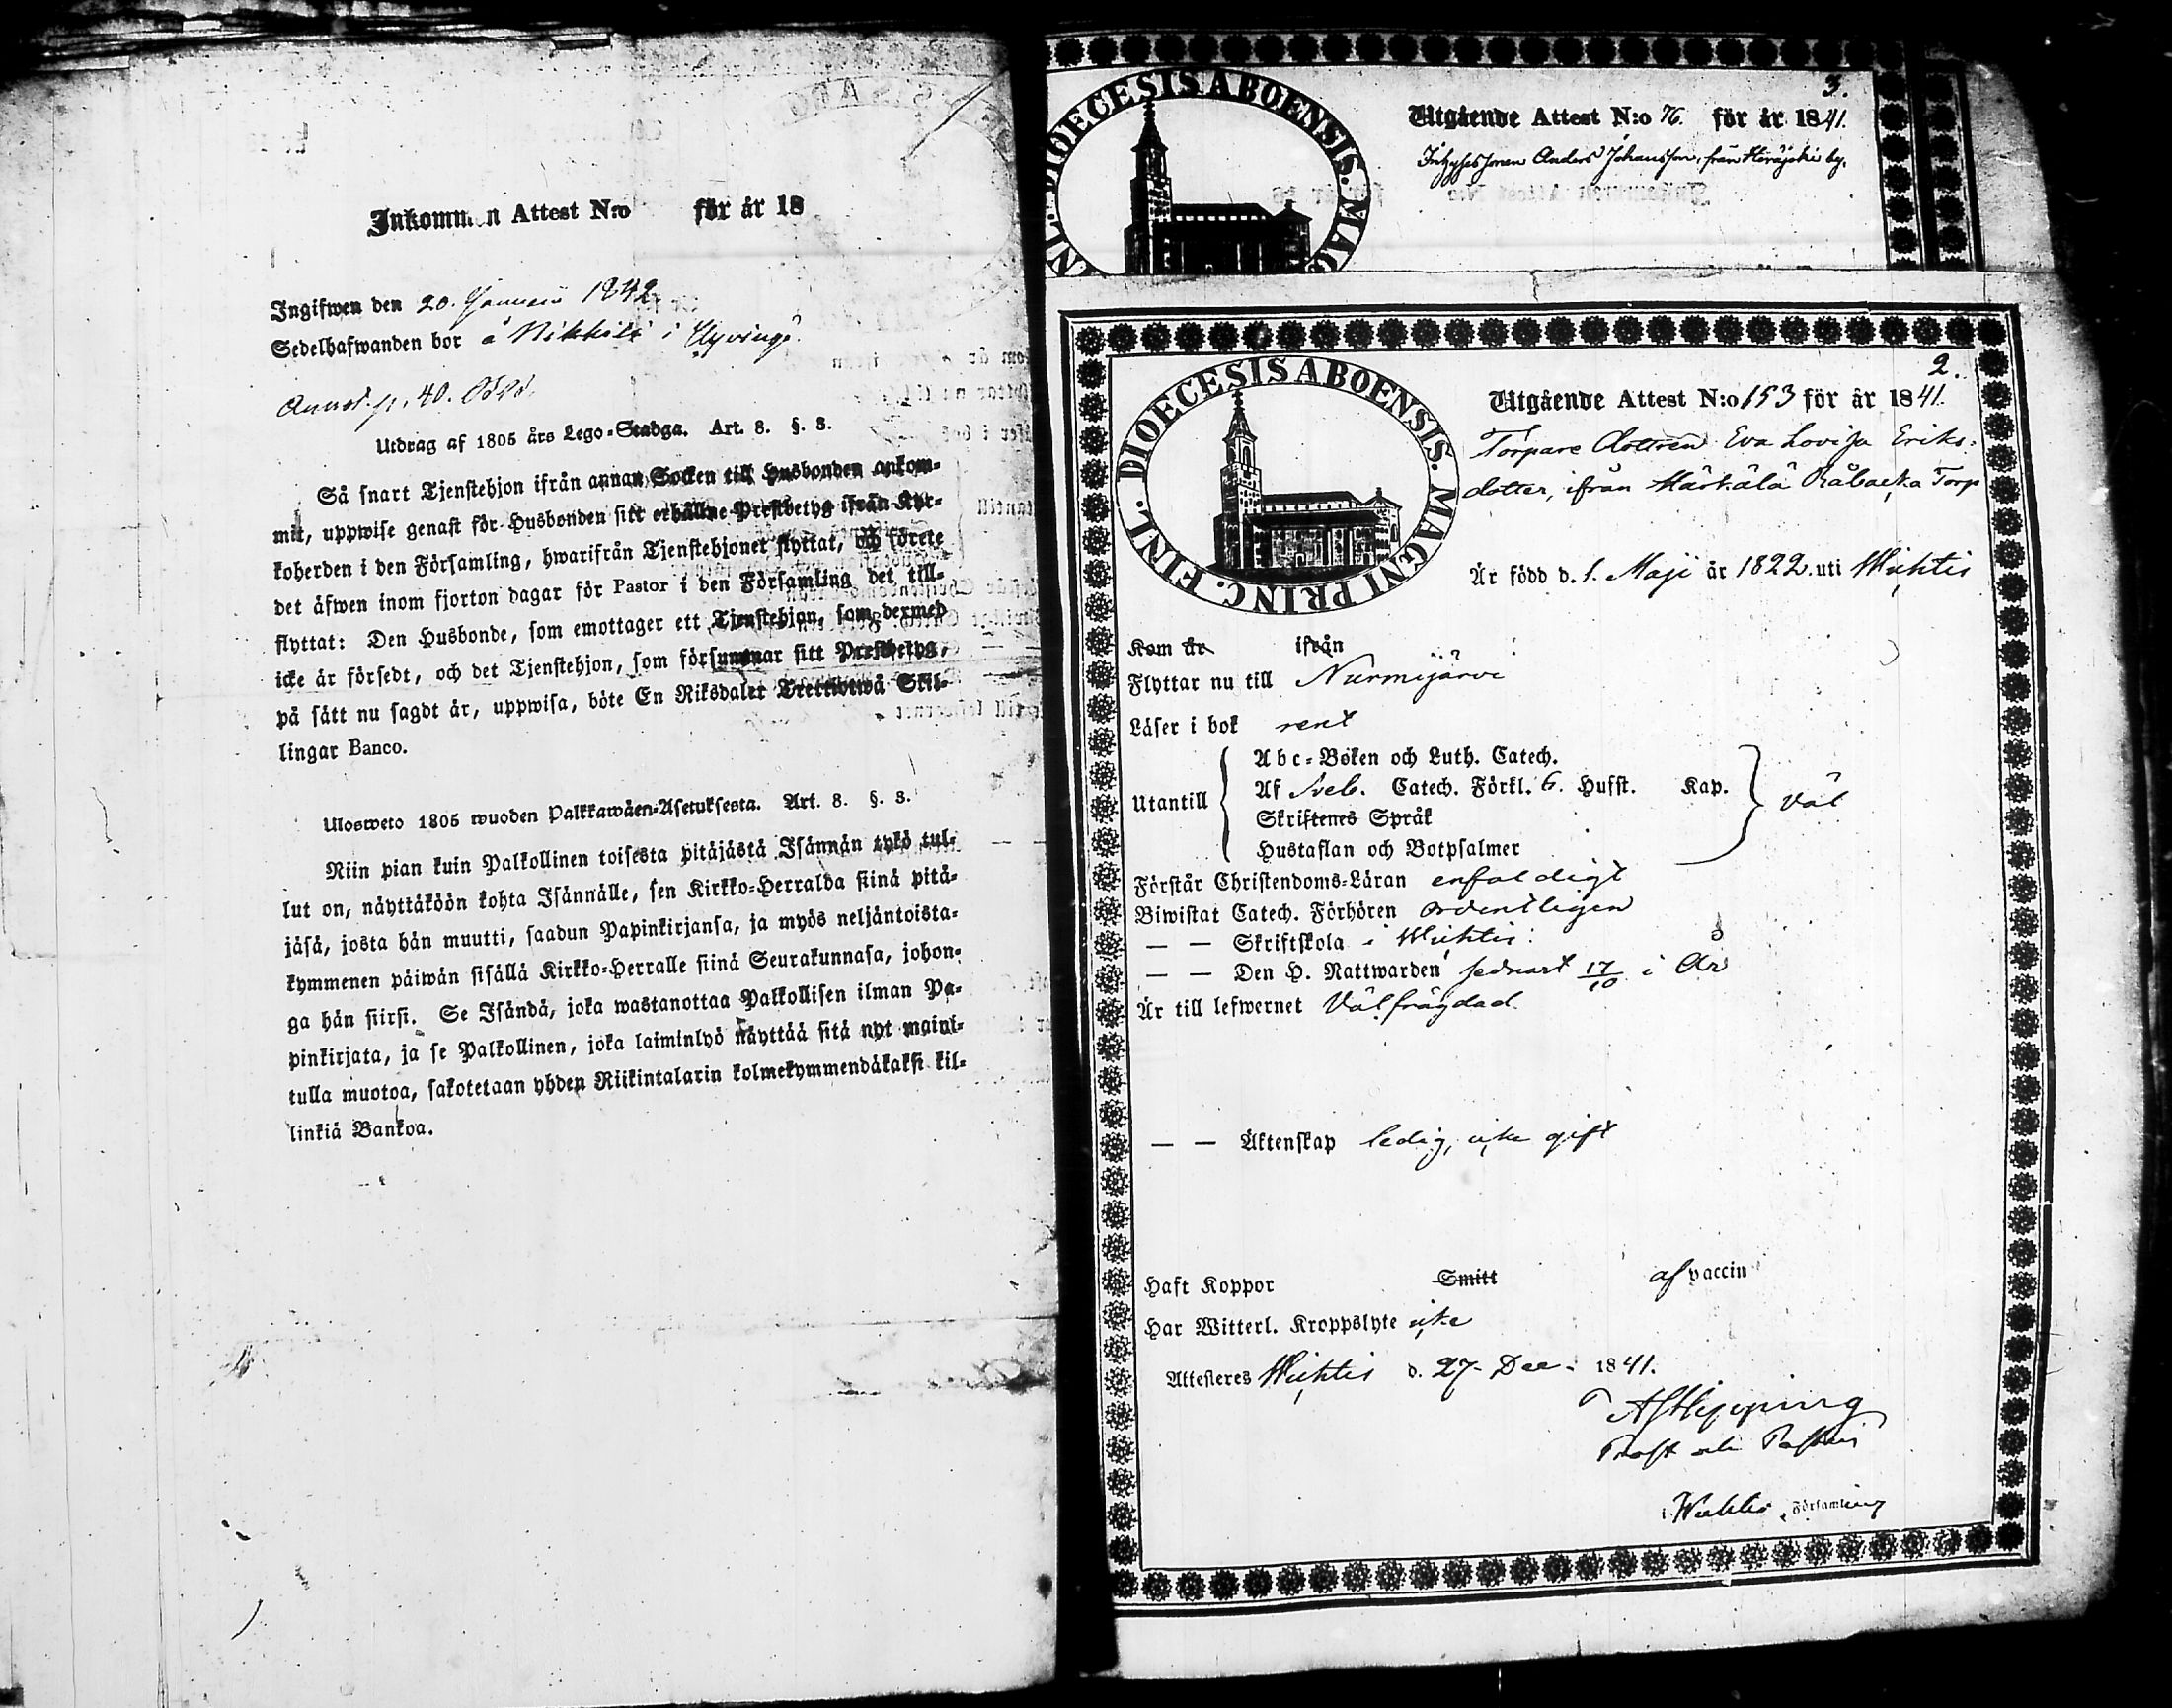 Inkommen Attest N:o för år 18
Ingifwen den 20. Januarii 1842.
Sedelhafwanden bor å Nikkilä i Hyvinge.
Annot. p. 40.
Utdrag af 1805 års Lego-Stadga. Art. 8. §. 3.
Så snart Tjenstehjon ifrån annan Socken till Husbonden ankom-
mit, uppwise genast för Husbonden sitt erhållne Prestbetyg ifrån Kyr-
koherden i den Församling, hwarifrån Tjenstehjonet flyttat, och förete
det äfwen inom fjorton dagar för Pastor i den Församling det till-
flyttat: Den Husbonde, som emottager ett Tjenstehjon, som dermed
icke är försedt, och det Tjenstehjon, som försummar sitt Prestbetyg,
på sätt nu sagdt är, uppwisa, böte En Riksdaler Trettiotwå Skil-
lingar Banco.
Ulosweto 1805 wuoden Palkkawäen-Asetuksesta. Art. 8. §. 3.
Niin pian kuin Palkollinen toisesta pitäjästä Isännän tykö tul-
lut on, näyttäköön kohta Isännälle, sen Kirkko-Herralda siinä pitä-
jäsä, josta hän muutti, saadun Papinkirjansa, ja myös neljäntoista-
kymmenen päiwän sisällä Kirkko-Herralle siinä Seurakunnasa, johon-
ga hän siirsi. Se Isändä, joka wastanottaa Palkollisen ilman Pa-
pinkirjata, ja se Palkollinen, joka laiminlyö näyttää sitä nyt mainit-
tulla muotoa, sakotetaan yhden Riikintalarin kolmekymmendäkaksi kil-
linkiä Bankoa.
3.
DIOECESIS ABOENSIS. MAG
Utgående Attest N:o 76. för år 1841.
Inhysessonen Anders Johansson, från Heräjoki by.
2.
DIOECESIS ABOENSIS. MAGNI PRINC. FINL.
Utgående Attest N:o 153 för år 1841.
Torpare dottren Eva Lovisa Eriks-
dotter, ifrån Härkälä Råbacka Torp
Är född d. 1. Maji år 1822. uti Wichtis
Kom år ifrån
Flyttar nu till Nurmijärvi
Läser i bok rent
Abc-Boken och Luth. Catech.
Utantill Af Sveb. Catech. Förkl. 6. Hufst. Kap. väl
Skriftenes Språk
Hustaflan och Botpsalmer
Förstår Christendoms-Läran enfaldigt
Biwistat Catech. Förhören ordentligen
— — Skriftskola i Wichtis.
— — Den H. Nattwarden sednast 17/10 i År
Är till lefwernet Välfrägdad
— — Äktenskap ledig, icke gift
Haft Koppor Smitt af vaccin
Har Witterl. Kroppslyte icke
Attesteres Wichtis d. 27 Dec. 1841.
Prost och Pastor
i Wichtis Församling